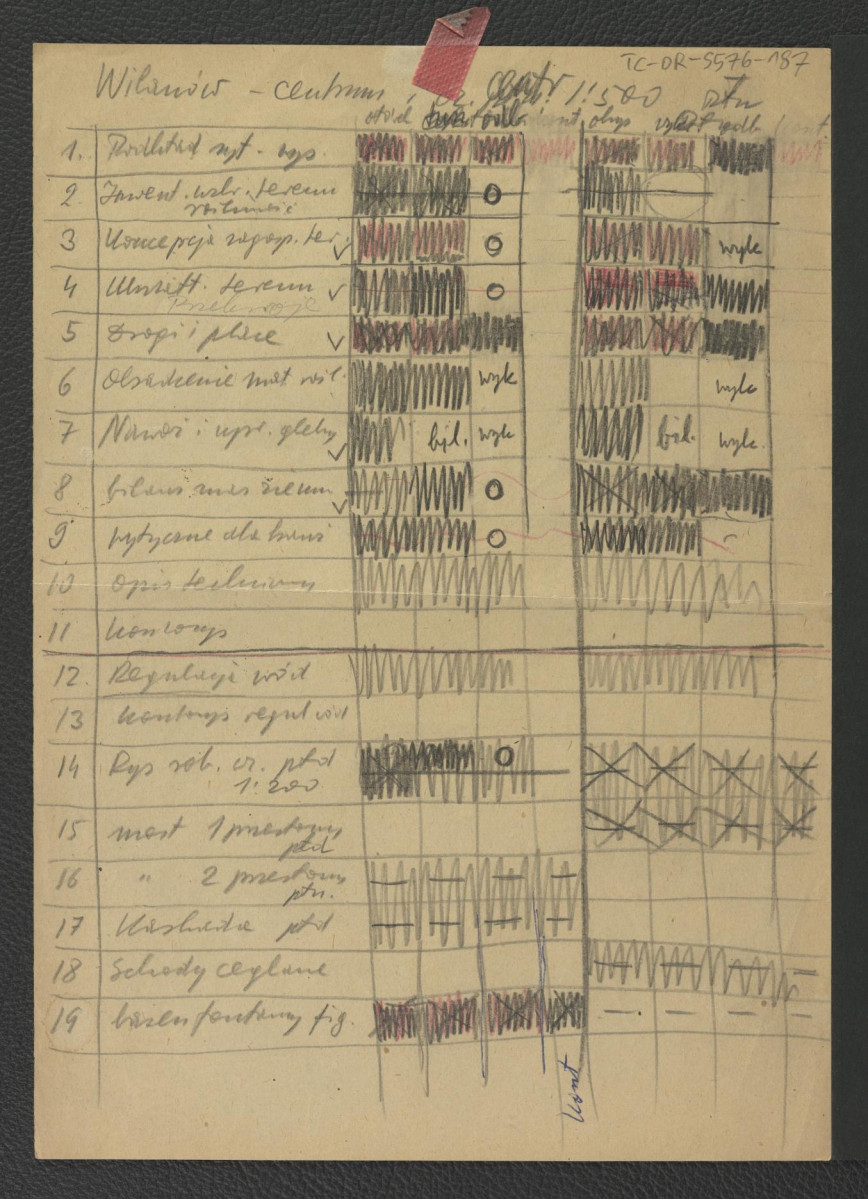 TC-DR-5576-187
Wilanów - centrum 1:500
1. Podkład syt. wys.
2 Inwent. terenu
3 Koncepcja zagosp. ter. wyk
4 Ukształt. terenu
Przekroje
5 Drogi i place
6 Obsadzenie mat. rośl. wyk wyk
7 Nawoż. i upr. gleby bil. wyk bil. wyk.
8 bilans mas ziemn
9 wytyczne dla
10 opis techniczny
11 kosztorys
12. Regulacja wód
13 kosztorys regul wód
14 Rys rob. cz. płd
1:200
15 most 1 przęsłowy
płd
16 " 2 przęsłowy
płn.
17 Kaskada płd
18 Schody ceglane
19 basen fontanny fig.
koszt